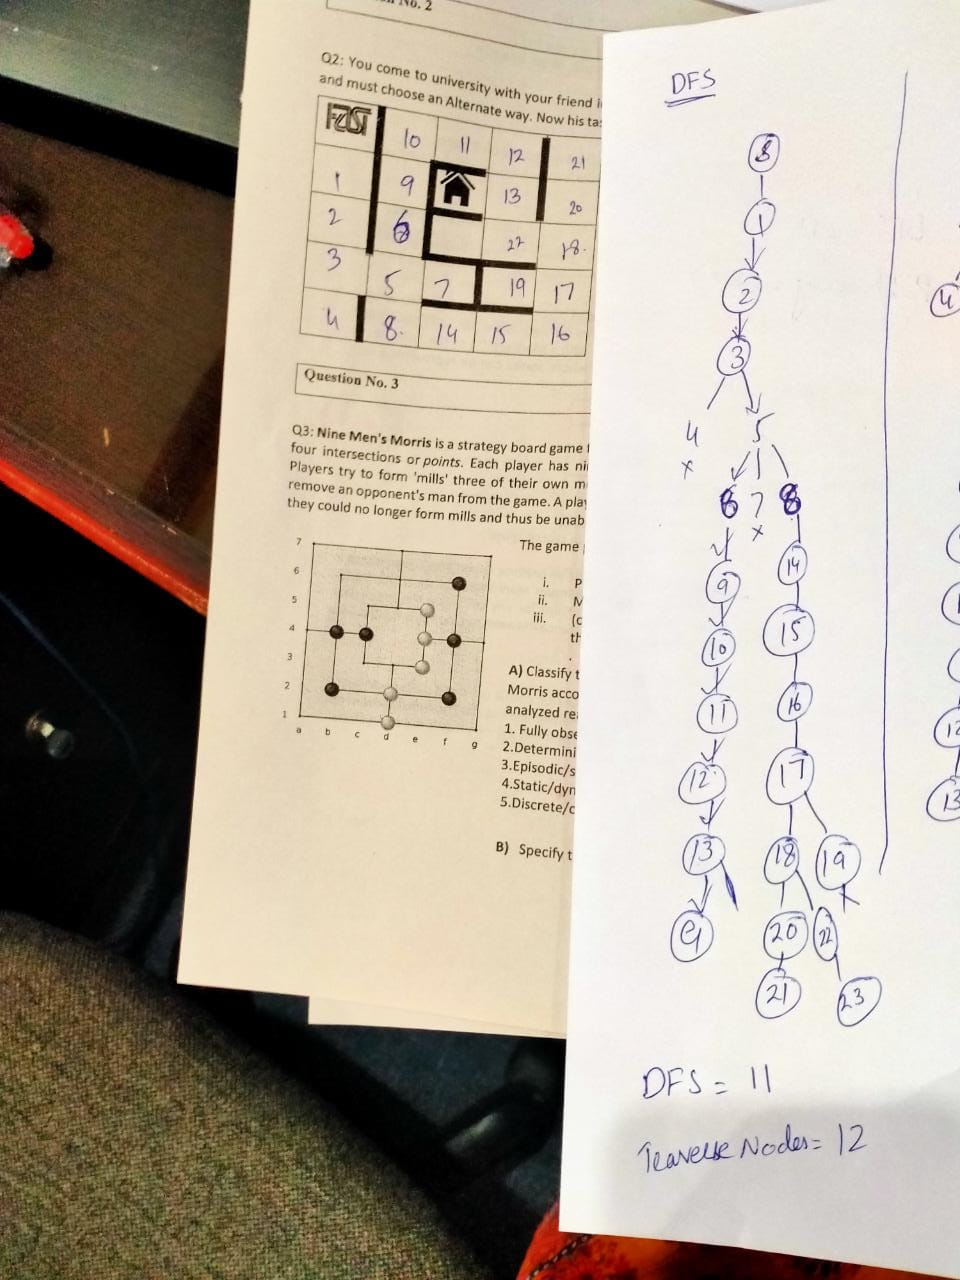 No. 2
Q2: You come to university with your friend
and must choose an Alternate way. Now his
FAST 10 11 12 21
1 9 13 20
2 6 22 18
3 5 7 19 17
4 8 14 15 16
Question No. 3
Q3: Nine Men's Morris is a strategy board game
four intersections or points. Each player has
Players try to form 'mills' three of their own
remove an opponent's man from the game. A
they could no longer form mills and thus be
The game
i. P
ii. M
iii. (c
th
7
6
5
4
3
2
1
a b c d e f g
A) Classify
Morris
analyzed
1. Fully
2.
3.Episodic/
4.Static/
5.Discrete/
B) Specify
DFS
S
1
2
3
4 5
x
6 7 8
x
9 14
10 15
11 16
12 17
13 18 19
x
G 20 22
21 23
DFS = 11
Traverse Nodes = 12
4
12
13